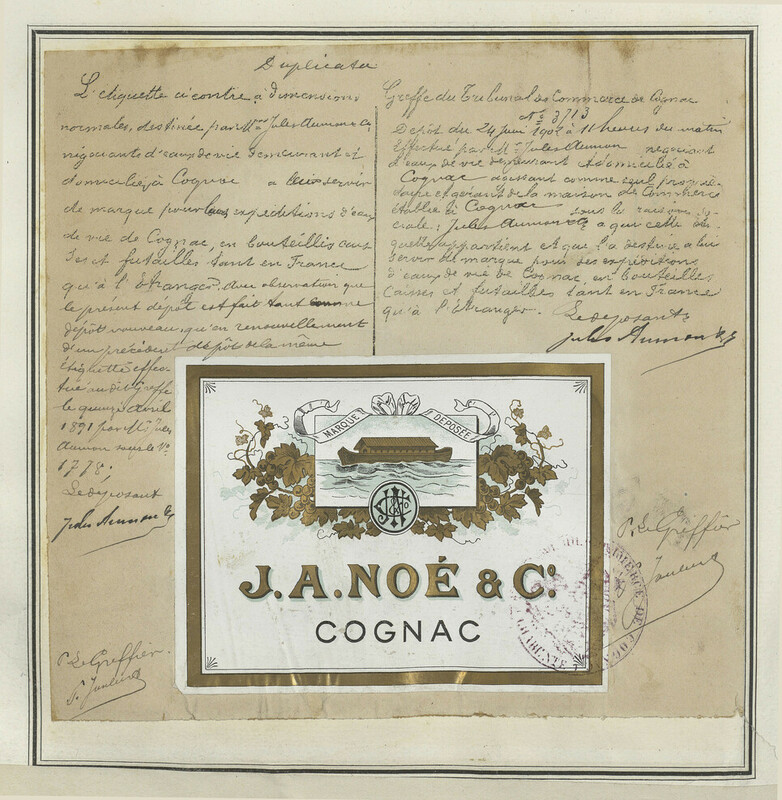 Duplicata
L'etiquette ci contre à dimensions
normales, destinée par Mr Jules Aumon & Co
négociants d'eaux de vie demeurant et
domiciliés à Cognac a leur servir
de marque pour leurs expéditions d'eaux
de vie de Cognac, en bouteilles cais
ses et futailles tant en France
qu'à l'Etranger. Avec observation que
le présent dépôt est fait tant comme
dépôt nouveau, qu'en renouvellement
d'un précédent dépôt de la même
étiquette effec
tué au dit Greffe
le quinze avril
1891 par Mr Jules
Aumon sous le No
1778;
Le déposant
Jules Aumon & Co
P. Le Greffier
Greffe du Tribunal de Commerce de Cognac
No 3713
Dépôt du 24 juin 1902 à 11 heures du matin
Effectué par Mr Jules Aumon negociant
d'eaux de vie demeurant et domicilié à
Cognac agissant comme seul proprié
taire et gérant de la maison de Commerce
établie à Cognac sous la raison so
ciale: Jules Aumon & Co a qui cette éti
quette appartient et que la destine a lui
servir de marque pour des expéditions
d'eaux de vie de Cognac, en bouteilles,
Caisses et futailles tant en France
qu'à l'Etranger. Le déposant
Jules Aumon & Co
P. Le Greffier
MARQUE DÉPOSÉE
J.A.NOÉ & Co.
COGNAC
COMMERCE DE COGNAC
CHARENTE